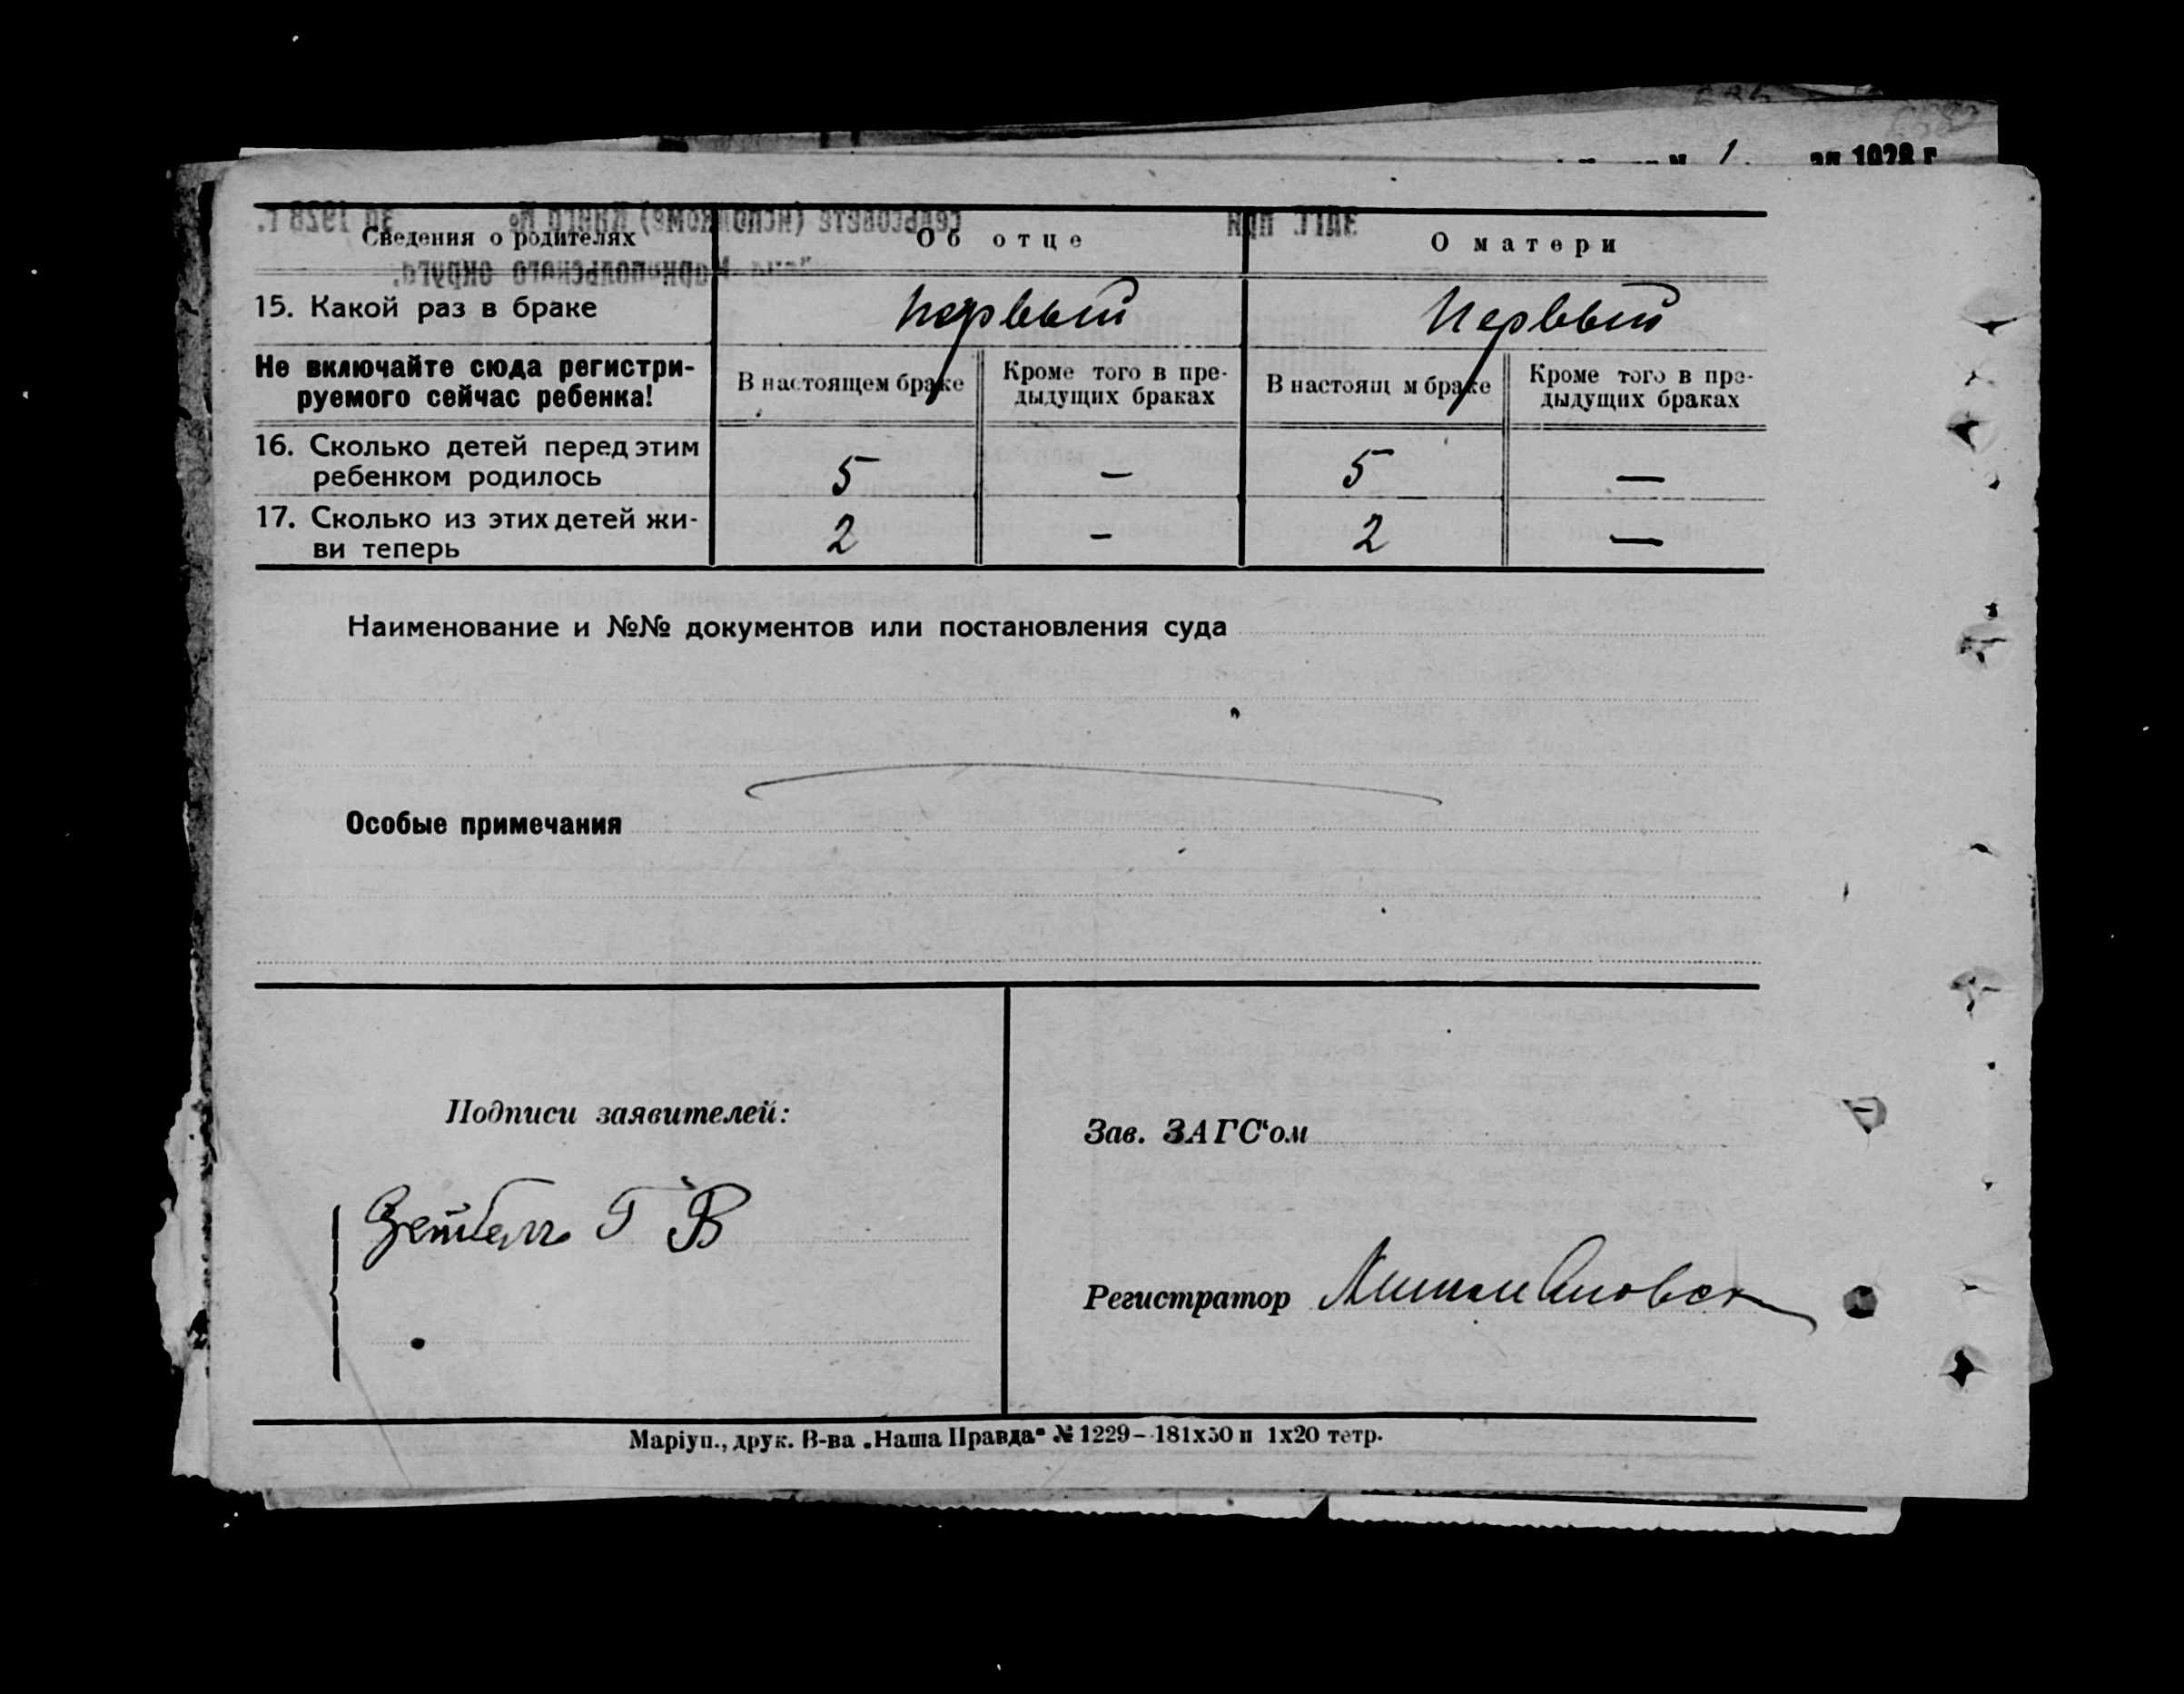 1.
1928 г
Сведения о родителях Об отце О матери
15. Какой раз в браке первый Первый
Не включайте сюда регистри-
руемого сейчас ребенка!
В настоящем браке Кроме того в пре-
дыдущих браках
В настоящ м браке Кроме того в пре-
дыдущих браках
16. Сколько детей перед этим
ребенком родилось 5 – 5 —
17. Сколько из этих детей жи-
ви теперь 2 – 2 —
Наименование и №№ документов или постановления суда
Особые примечания
Подписи заявителей:
Г В
Зав. ЗАГС‘ом
Регистратор
Маріуп., друк. В-ва „Наша Правда“ № 1229– 181х50 и 1х20 тетр.